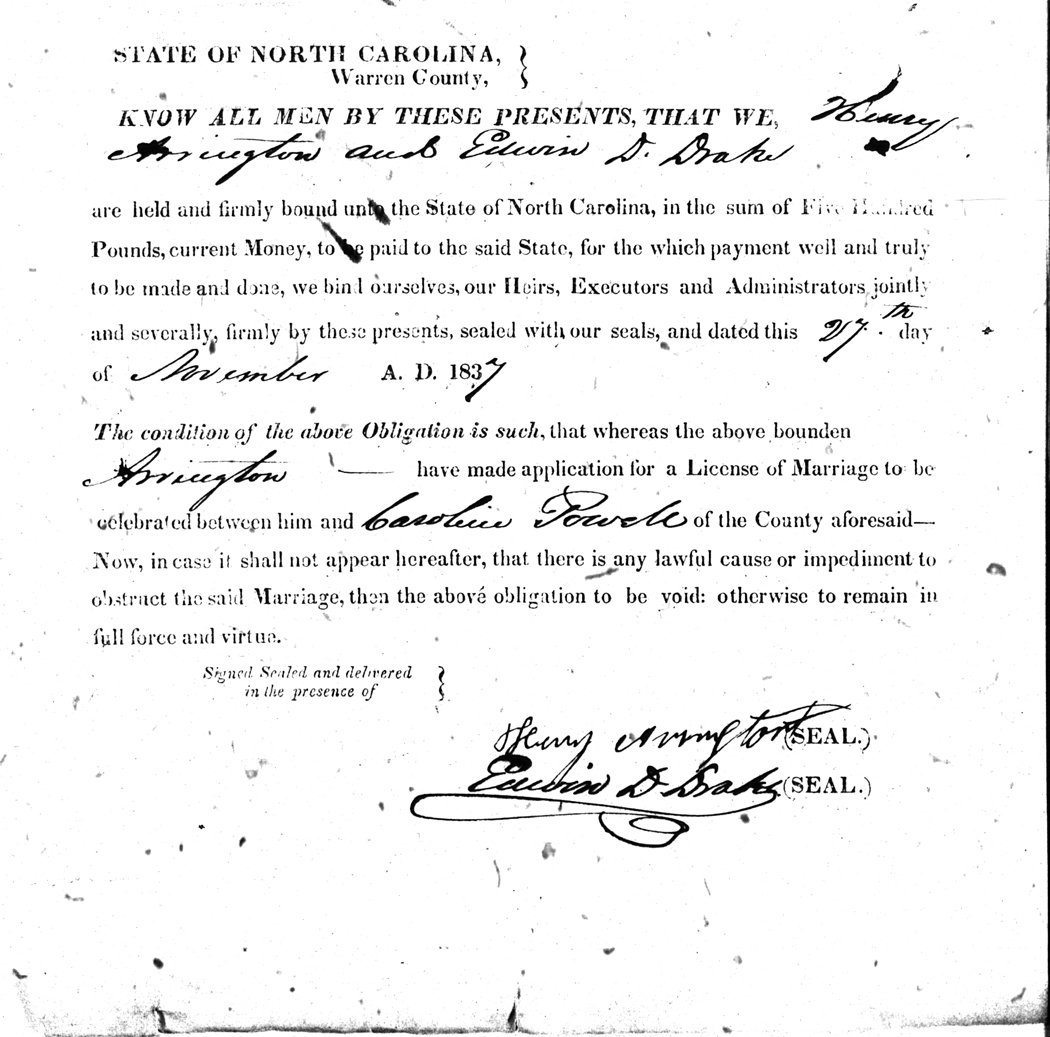 STATE OF NORTH CAROLINA,
Warren County,
KNOW ALL MEN BY THESE PRESENTS, THAT WE, Henry
Arrington and Edwin D. Drake
are held and firmly bound unto the State of North Carolina, in the sum of Five Hundred
Pounds, current Money, to be paid to the said State, for the which payment well and truly
to be made and done, we bind ourselves, our Heirs, Executors and Administrators jointly
and severally, firmly by these presents, sealed with our seals, and dated this 27th day
of November A. D. 1837
The condition of the above Obligation is such, that whereas the above bounden
Arrington — have made application for a License of Marriage to be
celebrated between him and Caroline Powell of the County aforesaid—
Now, in case it shall not appear hereafter, that there is any lawful cause or impediment to
obstruct the said Marriage, then the above obligation to be void: otherwise to remain in
full force and virtue.
Signed Sealed and delivered
in the presence of
Henry Arrington (SEAL.)
Edwin D Drake (SEAL.)